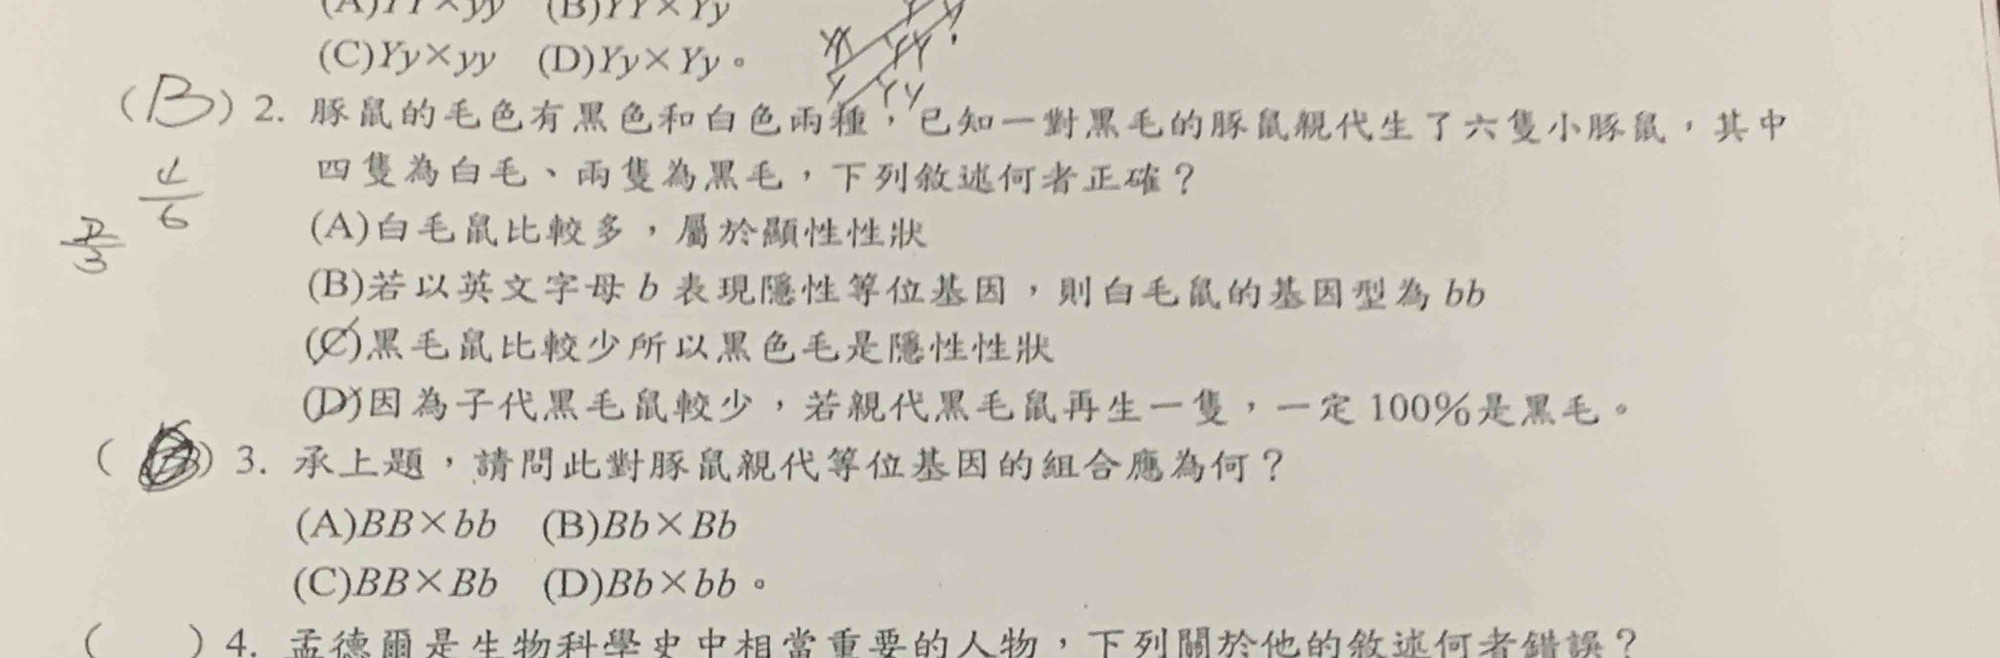 (A)YY×yy (B)YY×Yy
(C)Yy×yy (D)Yy×Yy。
(B) 2. 豚鼠的毛色有黑色和白色兩種，已知一對黑毛的豚鼠親代生了六隻小豚鼠，其中
四隻為白毛、兩隻為黑毛，下列敘述何者正確？
4/6
2/3
(A)白毛鼠比較多，屬於顯性性狀
(B)若以英文字母b表現隱性等位基因，則白毛鼠的基因型為bb
(C)黑毛鼠比較少所以黑色毛是隱性性狀
(D)因為子代黑毛鼠較少，若親代黑毛鼠再生一隻，一定100%是黑毛。
( ) 3. 承上題，請問此對豚鼠親代等位基因的組合應為何？
(A)BB×bb (B)Bb×Bb
(C)BB×Bb (D)Bb×bb。
( ) 4. 孟德爾是生物科學史中相當重要的人物，下列關於他的敘述何者錯誤？